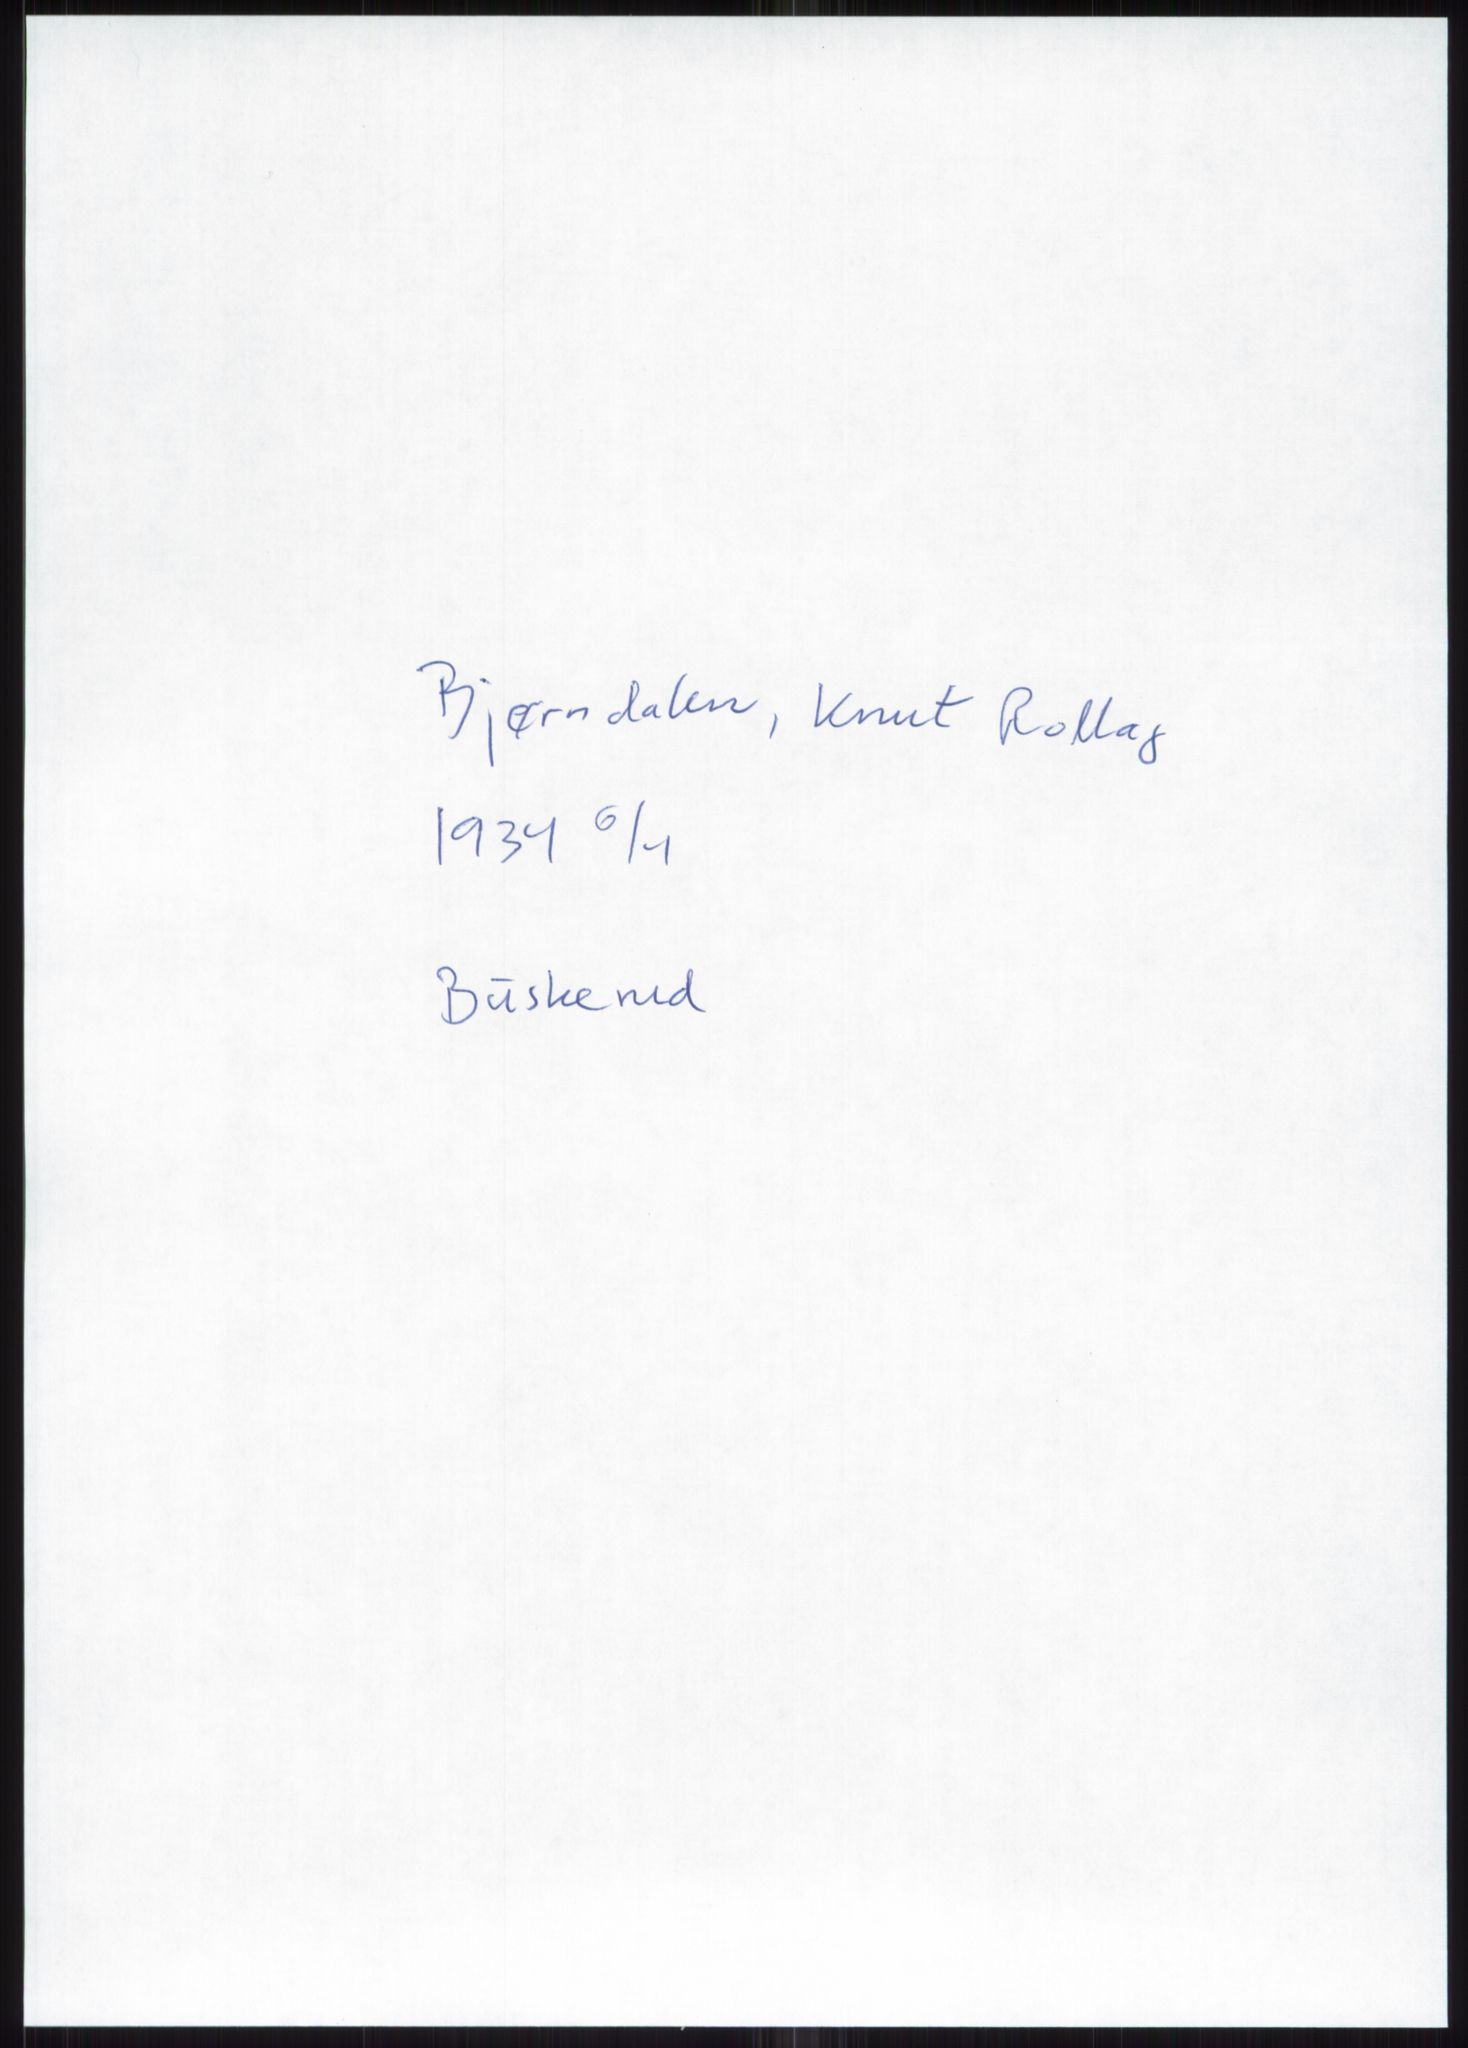 Bjørndalen, Knut Rollag
1934 6/4
Buskerud